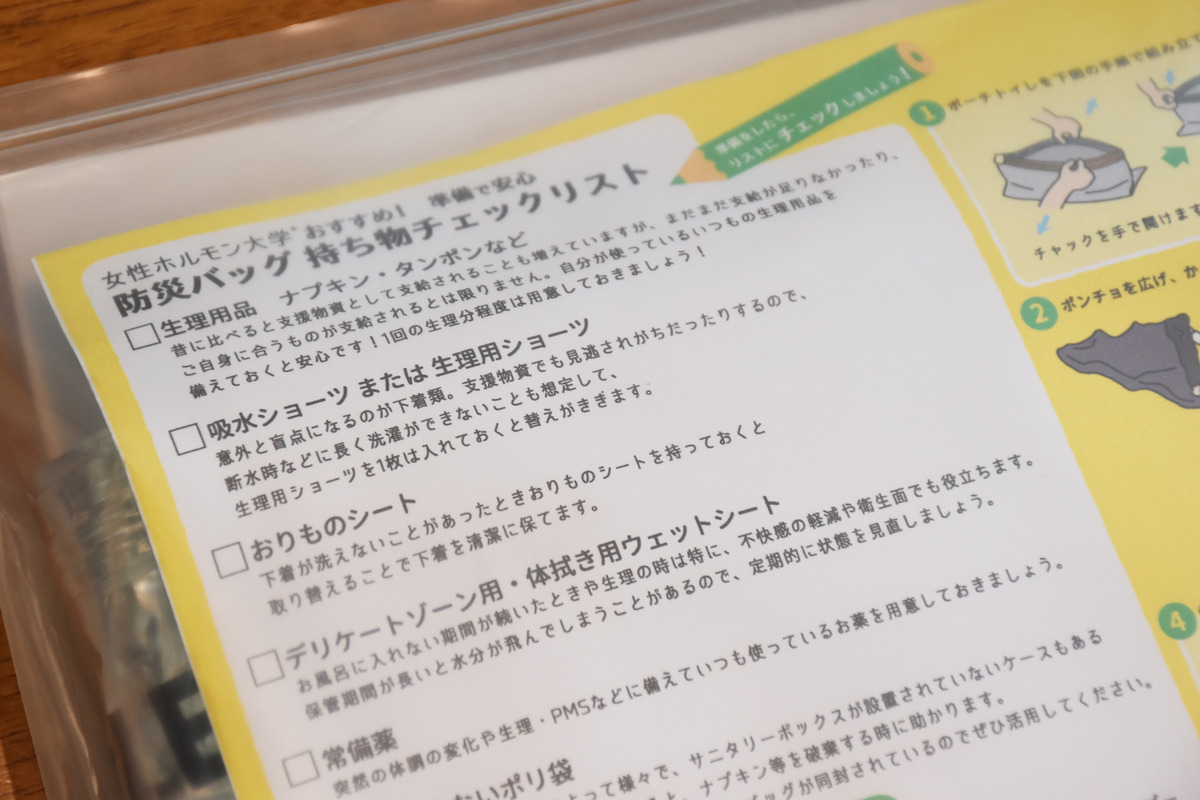 女性ホルモン大学® おすすめ! 準備で安心
防災バッグ 持ち物チェックリスト
準備をしたら、
リストにチェックしましょう!
生理用品 ナプキン・タンポンなど
昔に比べると支援物資として支給されることも増えていますが、まだまだ支給が足りなかったり、
ご自身に合うものが支給されるとは限りません。自分が使っているいつもの生理用品を
備えておくと安心です!1回の生理分程度は用意しておきましょう!
吸水ショーツ または 生理用ショーツ
意外と盲点になるのが下着類。支援物資でも見逃されがちだったりするので、
断水時などに長く洗濯ができないことも想定して、
生理用ショーツを1枚は入れておくと替えがきぎます。
おりものシート
下着が洗えないことがあったときおりものシートを持っておくと
取り替えることで下着を清潔に保てます。
デリケートゾーン用・体拭き用ウェットシート
お風呂に入れない期間が続いたときや生理の時は特に、不快感の軽減や衛生面でも役立ちます。
保管期間が長いと水分が飛んでしまうことがあるので、定期的に状態を見直しましょう。
常備薬
突然の体調の変化や生理・PMSなどに備えていつも使っているお薬を用意しておきましょう。
ないポリ袋
よって様々で、サニタリーボックスが設置されていないケースもある
と、ナプキン等を破棄する時に助かります。
バッグが同封されているのでぜひ活用してください。
1 ポーチトイレを下図の手順で組み立て
チャックを手で開けます
2 ポンチョを広げ、か
4
E